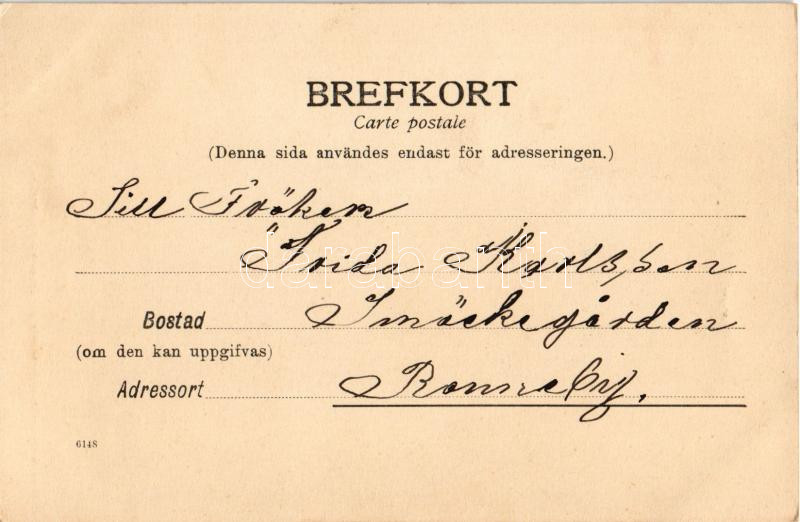 BREFKORT
Carte postale
(Denna sida användes endast för adresseringen.)
Till Fröken
Frida Karlsson
Bostad Smöckegården
(om den kan uppgifvas)
Adressort Ronneby.
6148
darabanth